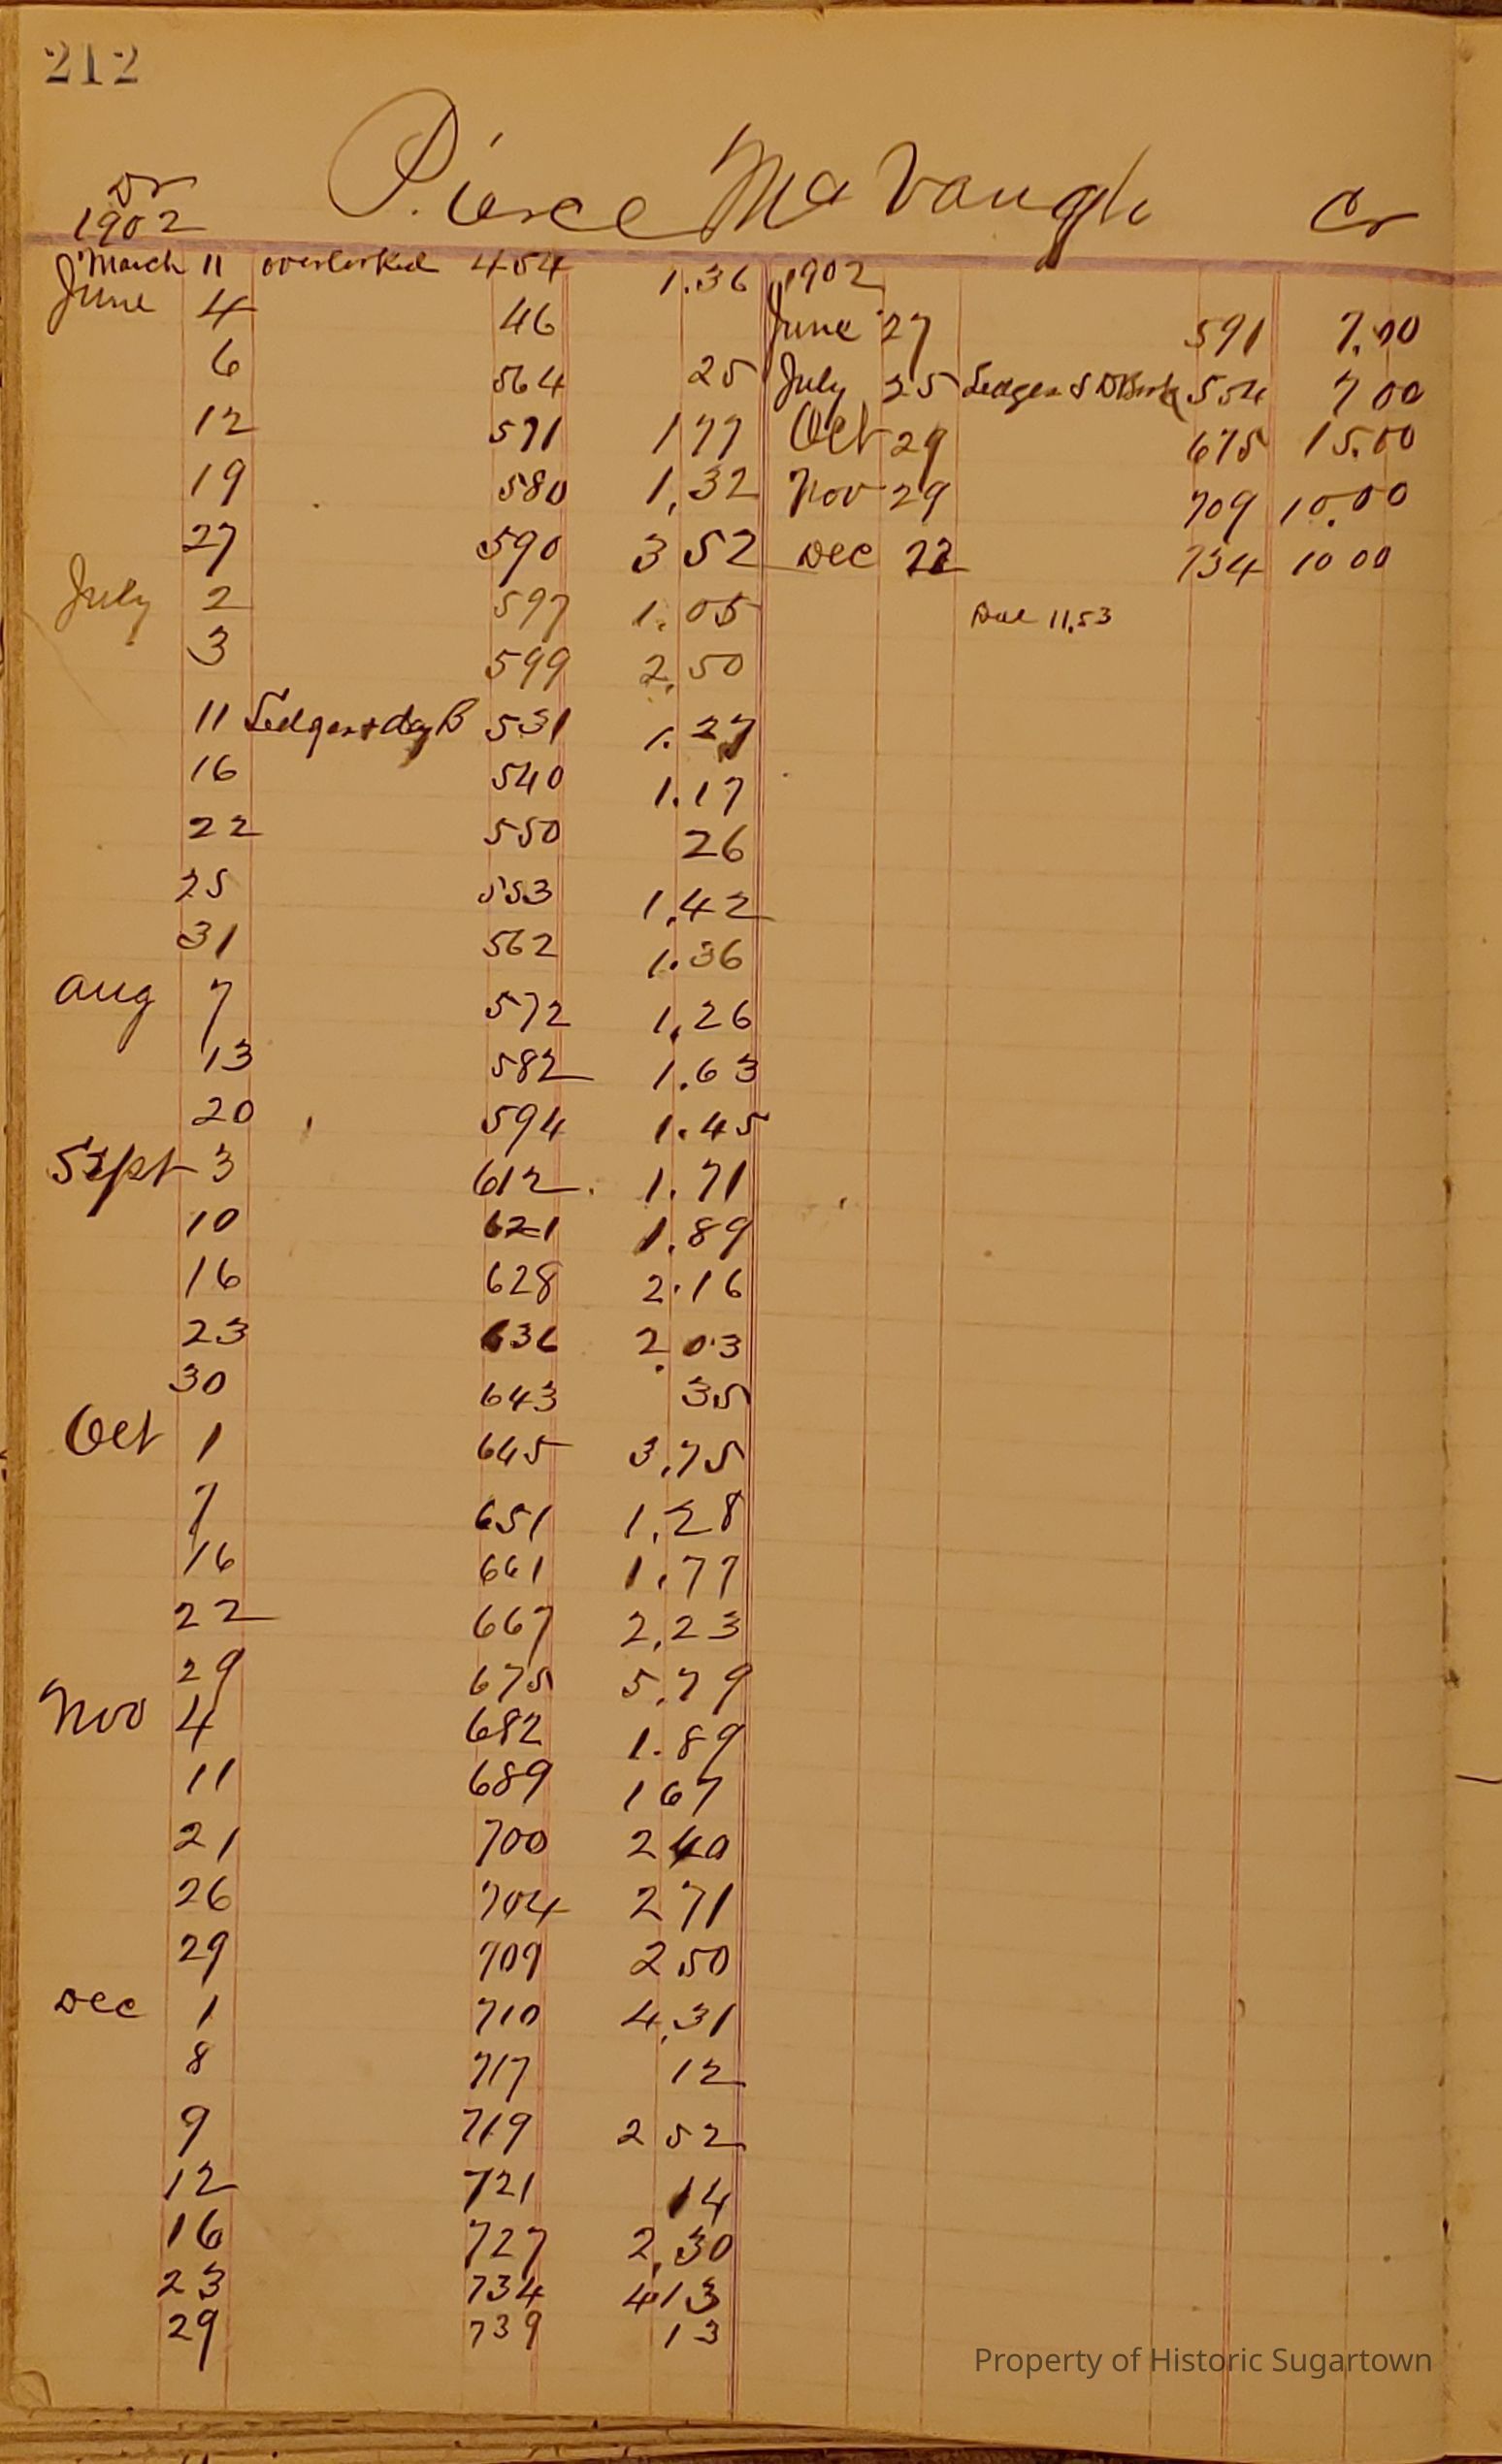 212
Dr
Pierce McVaugh
Cr
1902
March 11 overlooked 454 1.36
June 4 46
6 564 25
12 571 1 77
19 580 1,32
27 590 3 52
July 2 597 1.05
3 599 2,50
11 Ledger & day B 531 1.27
16 540 1.17
22 550 26
25 553 1,42
31 562 1.36
Aug 7 572 1,26
13 582 1.63
20 594 1.45
Sept 3 612 1.71
10 621 1.89
16 628 2.16
23 636 2.03
30 643 35
Oct 1 645 3,75
7 651 1,28
16 661 1.77
22 667 2,23
29 675 5,79
Nov 4 682 1.89
11 689 1 67
21 700 2 40
26 704 2 71
29 709 2.50
Dec 1 710 4,31
8 717 12
9 719 2 52
12 721 14
16 727 2,30
23 734 4 13
29 739 13
1902
June 27 591 7.00
July 25 Ledger & D Book 554 7 00
Oct 29 675 15.00
Nov 29 709 10.00
Dec 22 734 10 00
Due 11,53
Property of Historic Sugartown